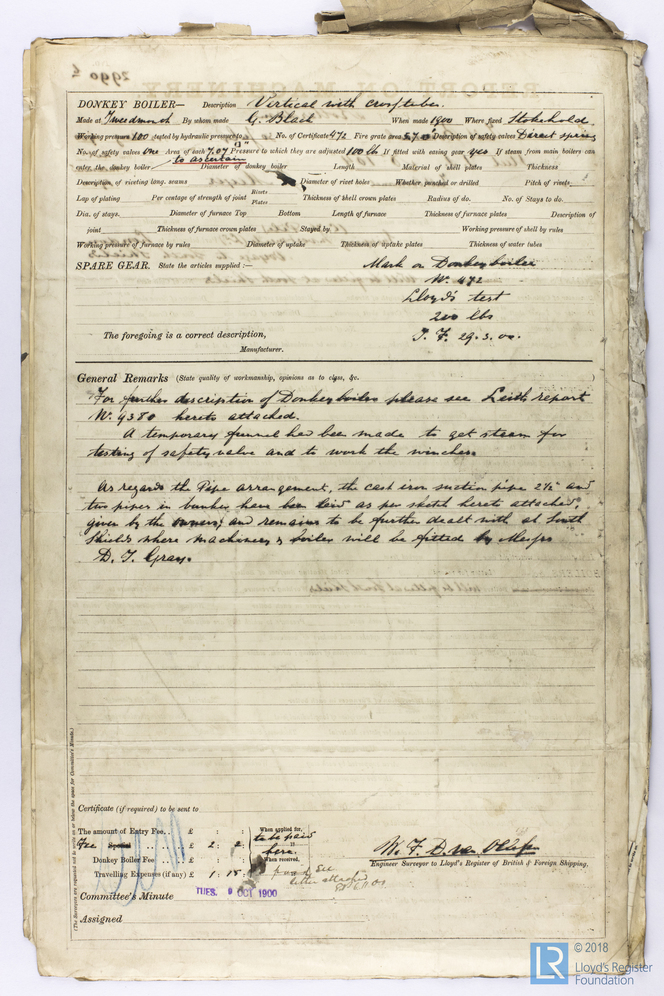 2990
DONKEY BOILER— Description Vertical with cross tubes.
Made at Tweedmouth By whom made G. Black When made 1900 Where fixed Stokehold.
Working pressure 100 tested by hydraulic pressure to No. of Certificate 472 Fire grate area Description of safety valves Direct spring
No. of safety valves One Area of each 7.07 3" Pressure to which they are adjusted 100 lb If fitted with easing gear yes If steam from main boilers can
enter the donkey boiler to ascertain Diameter of donkey boiler Length Material of shell plates Thickness
Description of riveting long. seams Diameter of rivet holes Whether punched or drilled Pitch of rivets
Lap of plating Per centage of strength of joint Rivets Plates Thickness of shell crown plates Radius of do. No. of Stays to do.
Dia. of stays. Diameter of furnace Top Bottom Length of furnace Thickness of furnace plates Description of
joint Thickness of furnace crown plates Stayed by Working pressure of shell by rules
Working pressure of furnace by rules Diameter of uptake Thickness of uptake plates Thickness of water tubes
SPARE GEAR. State the articles supplied :—
Mark on Donkey boiler
No. 472
Lloyd's test
200 lbs
29.3.00.
The foregoing is a correct description,
Manufacturer.
General Remarks (State quality of workmanship, opinions as to class, &c.
For further description of Donkey boiler please see Leith report
No. 9380 hereto attached.
A temporary funnel has been made to get steam for
testing of safety valve and to work the winches.
As regards the Pipe arrangement, the cast iron suction pipe 2½" and
two pipes in bunker have been laid as per sketch hereto attached,
given by the owners, and remains to be further dealt with at South
Shields where machinery & boiler will be fitted by Messrs
D. T. Gray.
(The Surveyors are requested not to write on or below the space for Committee's Minute.)
Certificate (if required) to be sent to
The amount of Entry Fee.. £ : : When applied for,
Fee £ 2 : 2 : to be paid
Donkey Boiler Fee £ : : here.
When received,
Travelling Expenses (if any) £ 1 : 18 : paid See
letter attached
Engineer Surveyor to Lloyd's Register of British & Foreign Shipping.
Committee's Minute TUES. 9 OCT 1900
Assigned
LR
© 2018
Lloyd's Register
Foundation